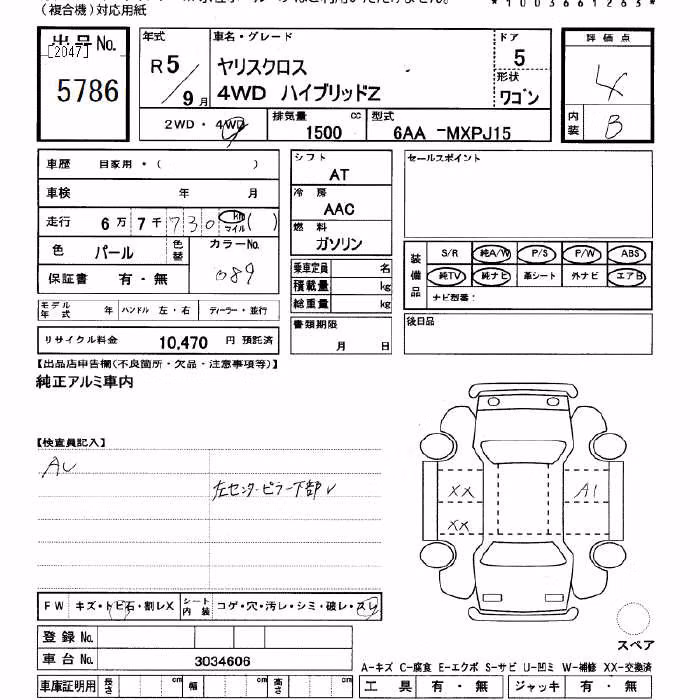 (複合機)対応用紙
*1003661263*
出品No. [2047] 5786
年式 R5/9月
車名・グレード
ヤリスクロス
4WD ハイブリッドZ
ドア 5
形状 ワゴン
評価点 4
内装 B
2WD・4WD
排気量 1500 cc
型式 6AA -MXPJ15
車歴 自家用・( )
車検 年 月
走行 6万7千730 km マイル ( )
色 パール 色替 カラーNo. 089
保証書 有・無
モデル年式 年 ハンドル 左・右 ディーラー・並行
リサイクル料金 10,470 円 預託済
シフト AT
冷房 AAC
燃料 ガソリン
乗車定員 名
積載量 kg
総重量 kg
書類期限
月 日
セールスポイント
装備品 S/R 純A/W P/S P/W ABS
純TV 純ナビ 革シート 外ナビ エアB
ナビ型番:
後日品
【出品店申告欄(不良箇所・欠品・注意事項等)】
純正アルミ車内
【検査員記入】
AU
左センターピラー下部
XX
XX
A1
FW キズ・トビ石・割レX
シート内装 コゲ・穴・汚レ・シミ・破レ・スレ
登録No.
車台No. 3034606
車庫証明用 長さ cm 幅 cm 高さ cm
スペア
A-キズ C-腐食 E-エクボ S-サビ U-凹ミ W-補修 XX-交換済
工具 有・無 ジャッキ 有・無